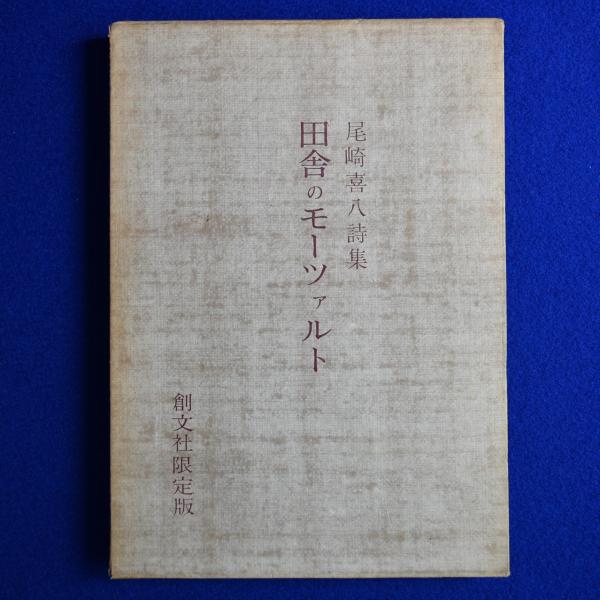 尾崎喜八詩集
田舎のモーツァルト
創文社限定版